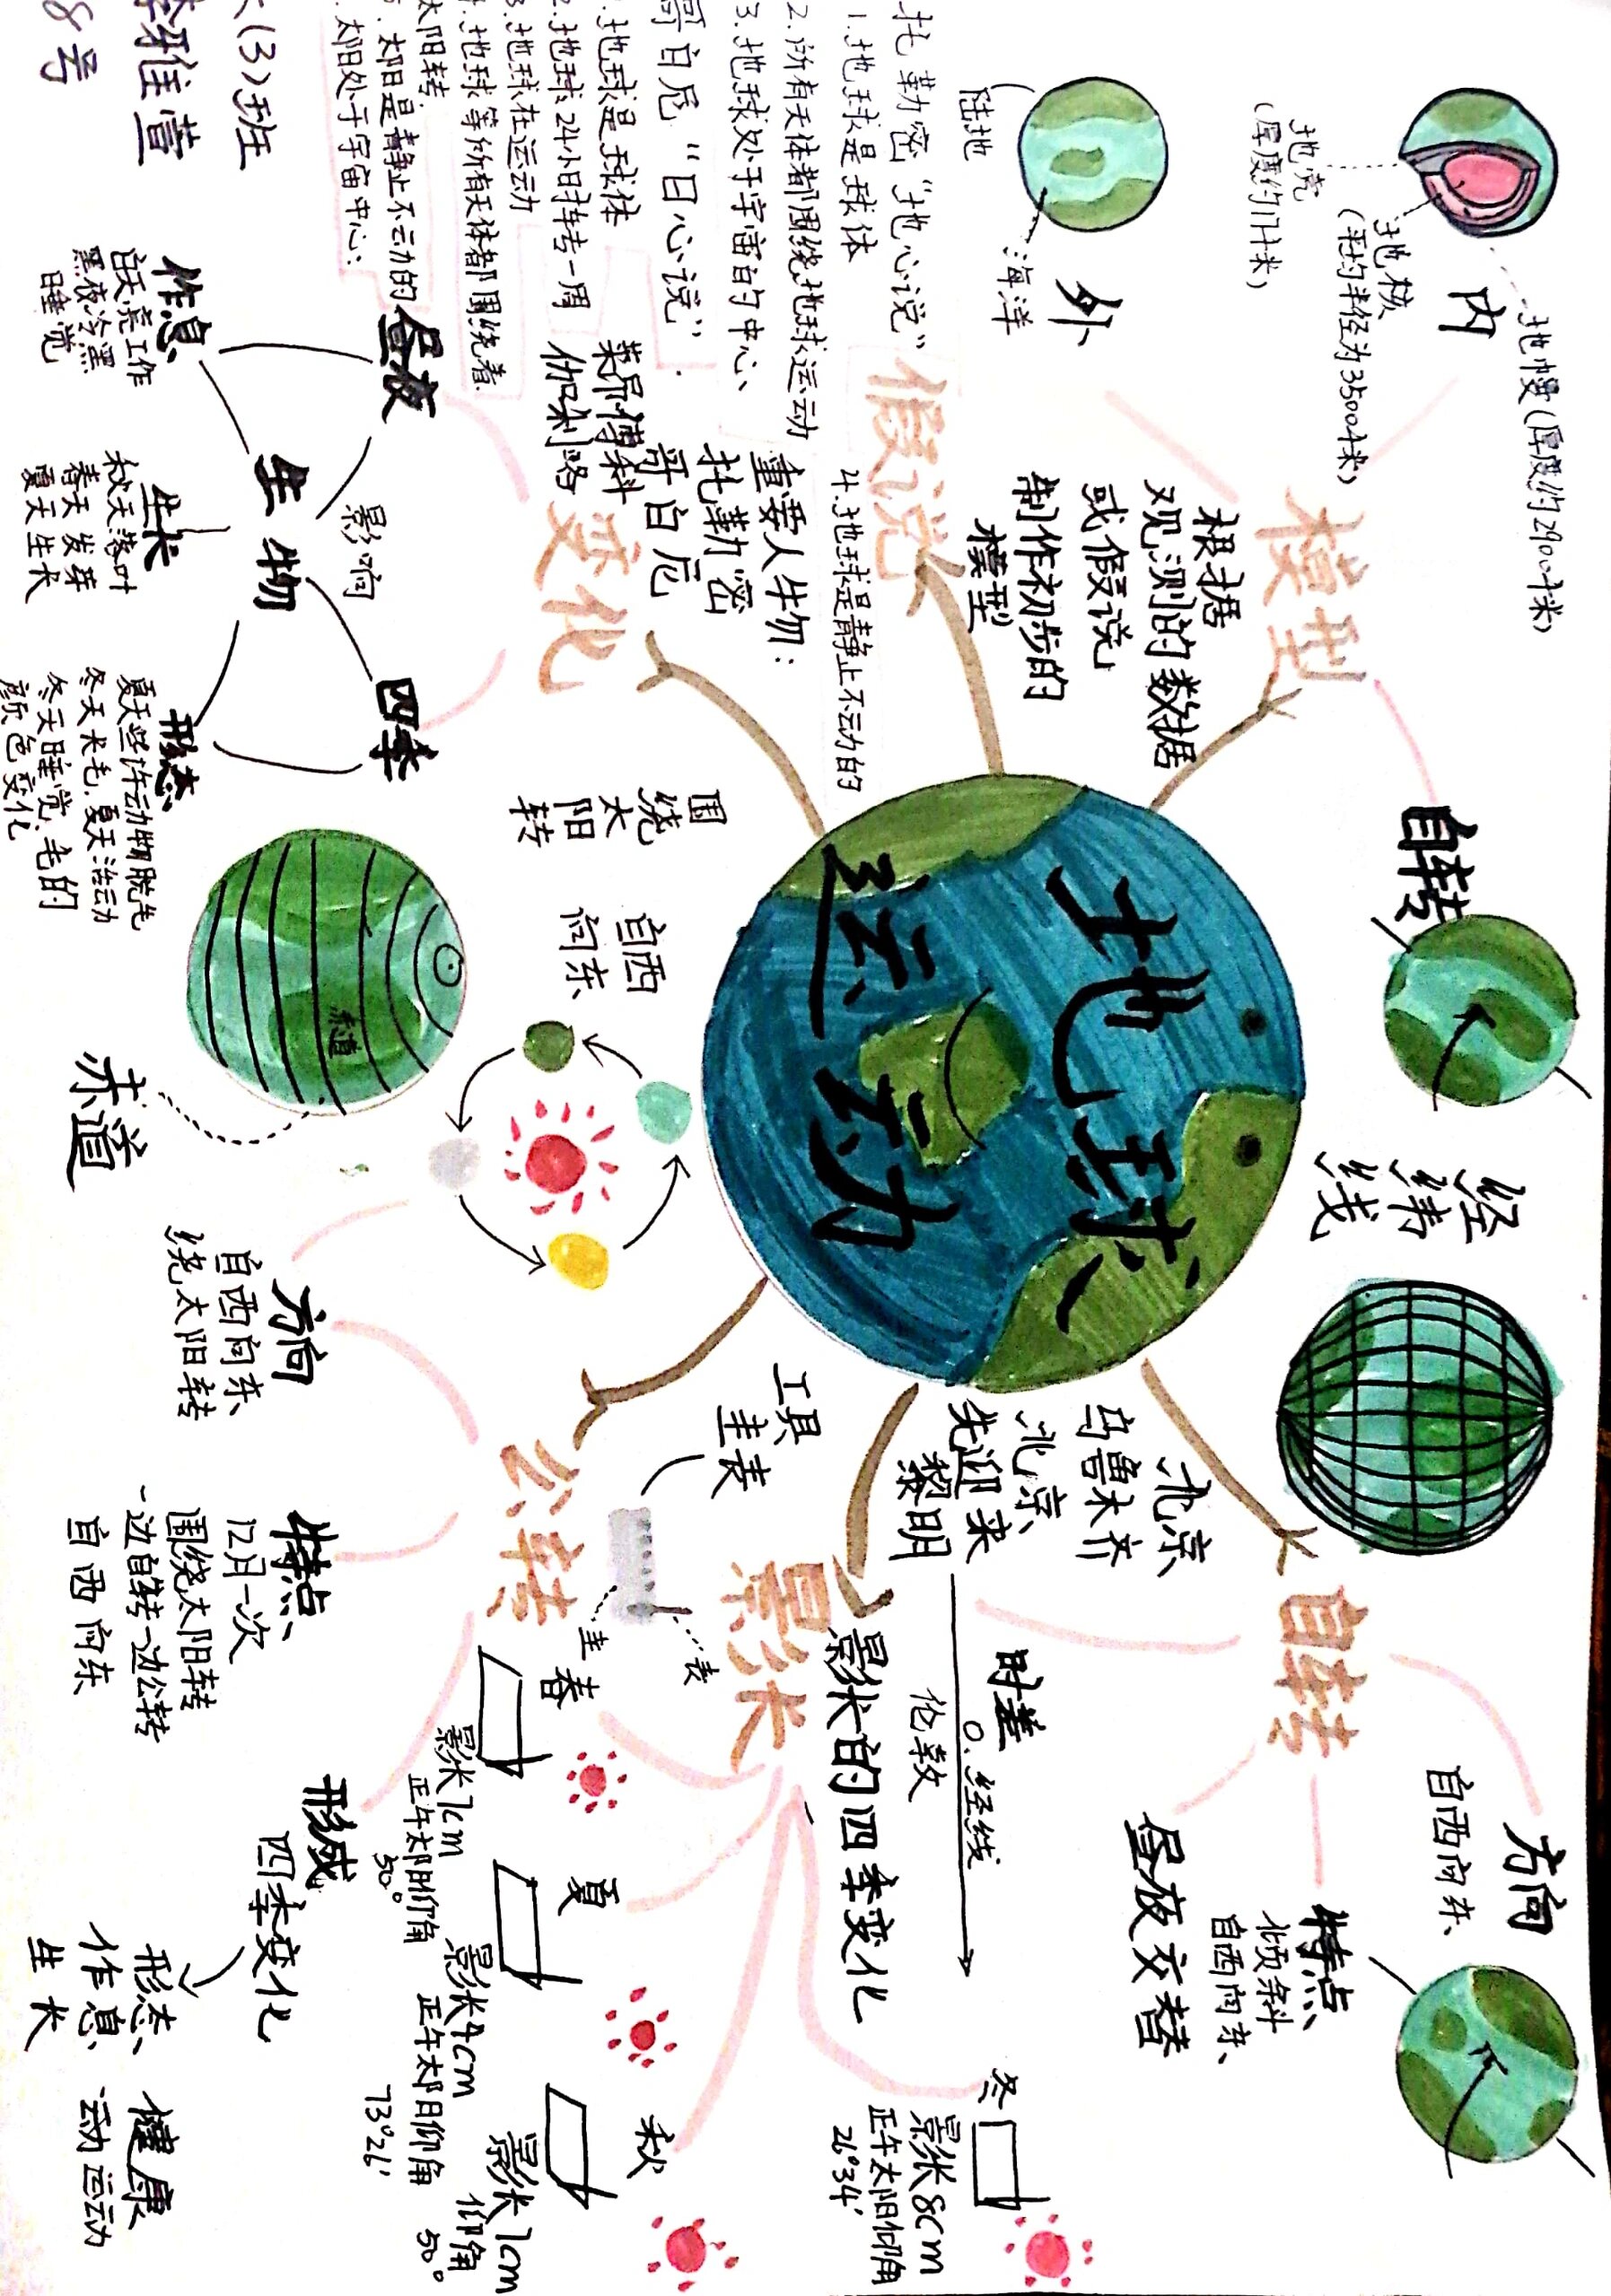 地球
运动
模型
根据
观测的数据
或假说
制作初步的
模型
内
地幔(厚度约2900千米)
地核
(平均半径为3500千米)
地壳
(厚度约17千米)
外
陆地
海洋
自转
经
纬
线
假说
托勒密“地心说”
1.地球是球体
2.所有天体都围绕地球运动
3.地球处于宇宙的中心、
4.地球是静止不动的
哥白尼“日心说”
地球是球体
2.地球24小时转一周
3.地球在运动
地球等所有天体都围绕着
太阳转.
太阳是静止不动的
太阳处于宇宙中心:
重要人物:
托勒密
哥白尼
莱昂傅科
伽利略
变化
昼夜
四季
影响
生物
作息
白天亮工作
黑夜冷黑
睡觉
生长
秋天落叶
春天发芽
夏天生长
形态
夏天些许动物脱毛
冬天长毛、夏天活动
冬天睡觉、毛的
颜色变化
(3)班
8号
围
绕
太
阳
转
自西
向东
赤道
赤道
公转
方向
自西向东、
绕太阳转
特点
12月一次
围绕太阳转
一边自转一边公转
自西向东
形成
四季变化
形态、
作息、
生长
健康
运动
影长
工具
圭表
圭
表
影长的四季变化
春
影长7cm
正午太阳仰角
50°
夏
影长4cm
正午太阳仰角
73°26′
秋
影长7cm
仰角
50°
冬
影长8cm
正午太阳仰角
26°34′
自转
方向
自西向东、
特点
倾斜
自西向东、
昼夜交替
时差
0.经线
伦敦
北京
乌鲁木齐
北京
先迎来
黎明